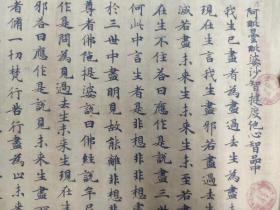 阿毗曇毗婆沙智揵度他心智品中
我生已盡者為盡過去生為盡
現在生言我生盡耶若盡過去生
滅若盡未來生未至若盡
在生不住答曰應作是說盡三世
何此中言生者是非想非非想
於三世中盡明見故能離非想
尊者佛陀提婆說曰佛經說牟尼
作是問為見過去生未來生現在生
耶答曰應作是說見未來生盡
者備一切梵行苦行盡為以未